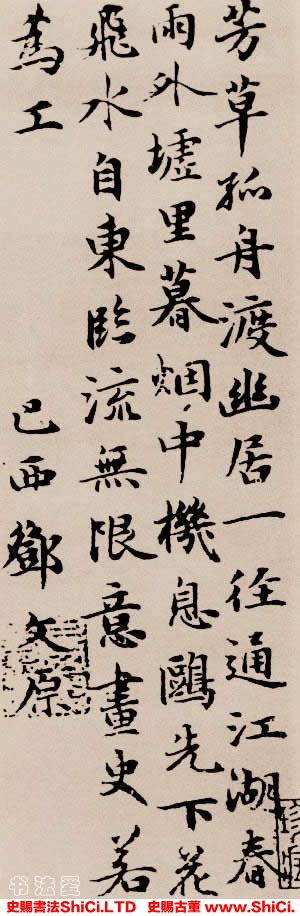 芳草孤舟渡幽居一径通江湖春
雨外墟里暮烟中機息鷗先下花
飛水自東臨流無限意畫史若
為工
已酉鄧文原
书法爱
史賜書法ShiCi.LTD 史賜古董 www.ShiCi.M